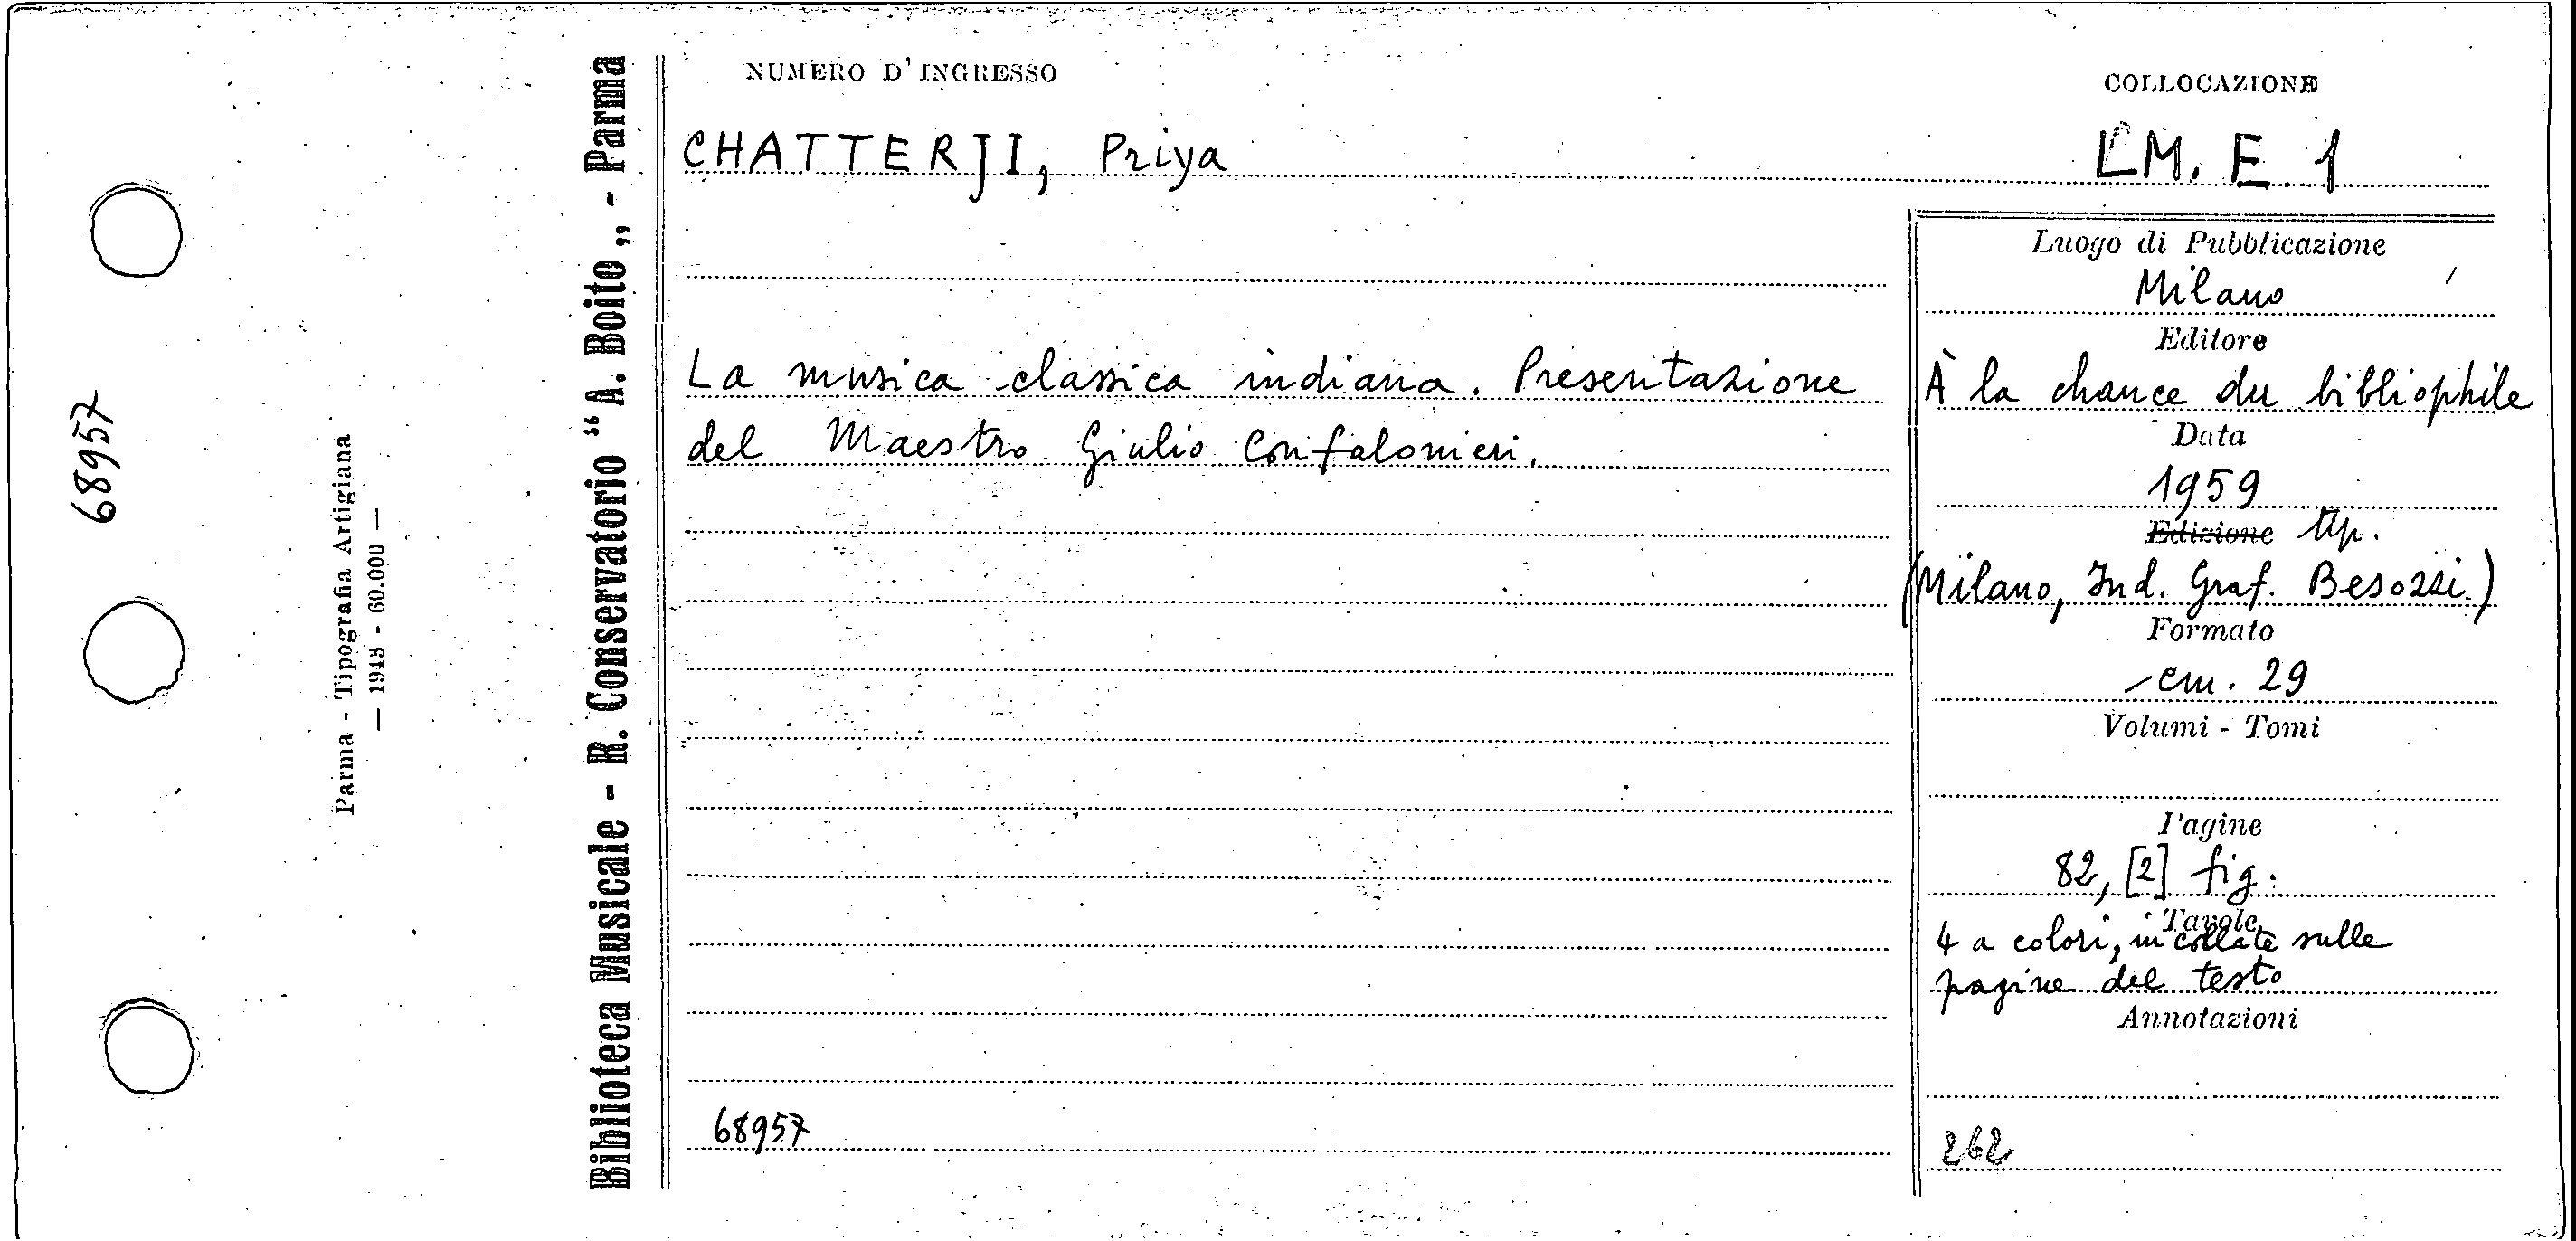 68957
Parma - Tipografia Artigiana
— 1943 - 60.000 —
Biblioteca Musicale - R. Conservatorio “A. Boito„ - Parma
NUMERO D'INGRESSO
COLLOCAZIONE
CHATTERJI, Priya
LM. E 1
La musica classica indiana. Presentazione
del Maestro Giulio Confalonieri.
68957
Luogo di Pubblicazione
Milano
Editore
À la chance du bibliophile
Data
1959
Edizione tip.
(Milano, Ind. Graf. Besozzi)
Formato
cm. 29
Volumi - Tomi
Pagine
82, [2] fig.
Tavole
4 a colori, incollate sulle
pagine del testo
Annotazioni
262